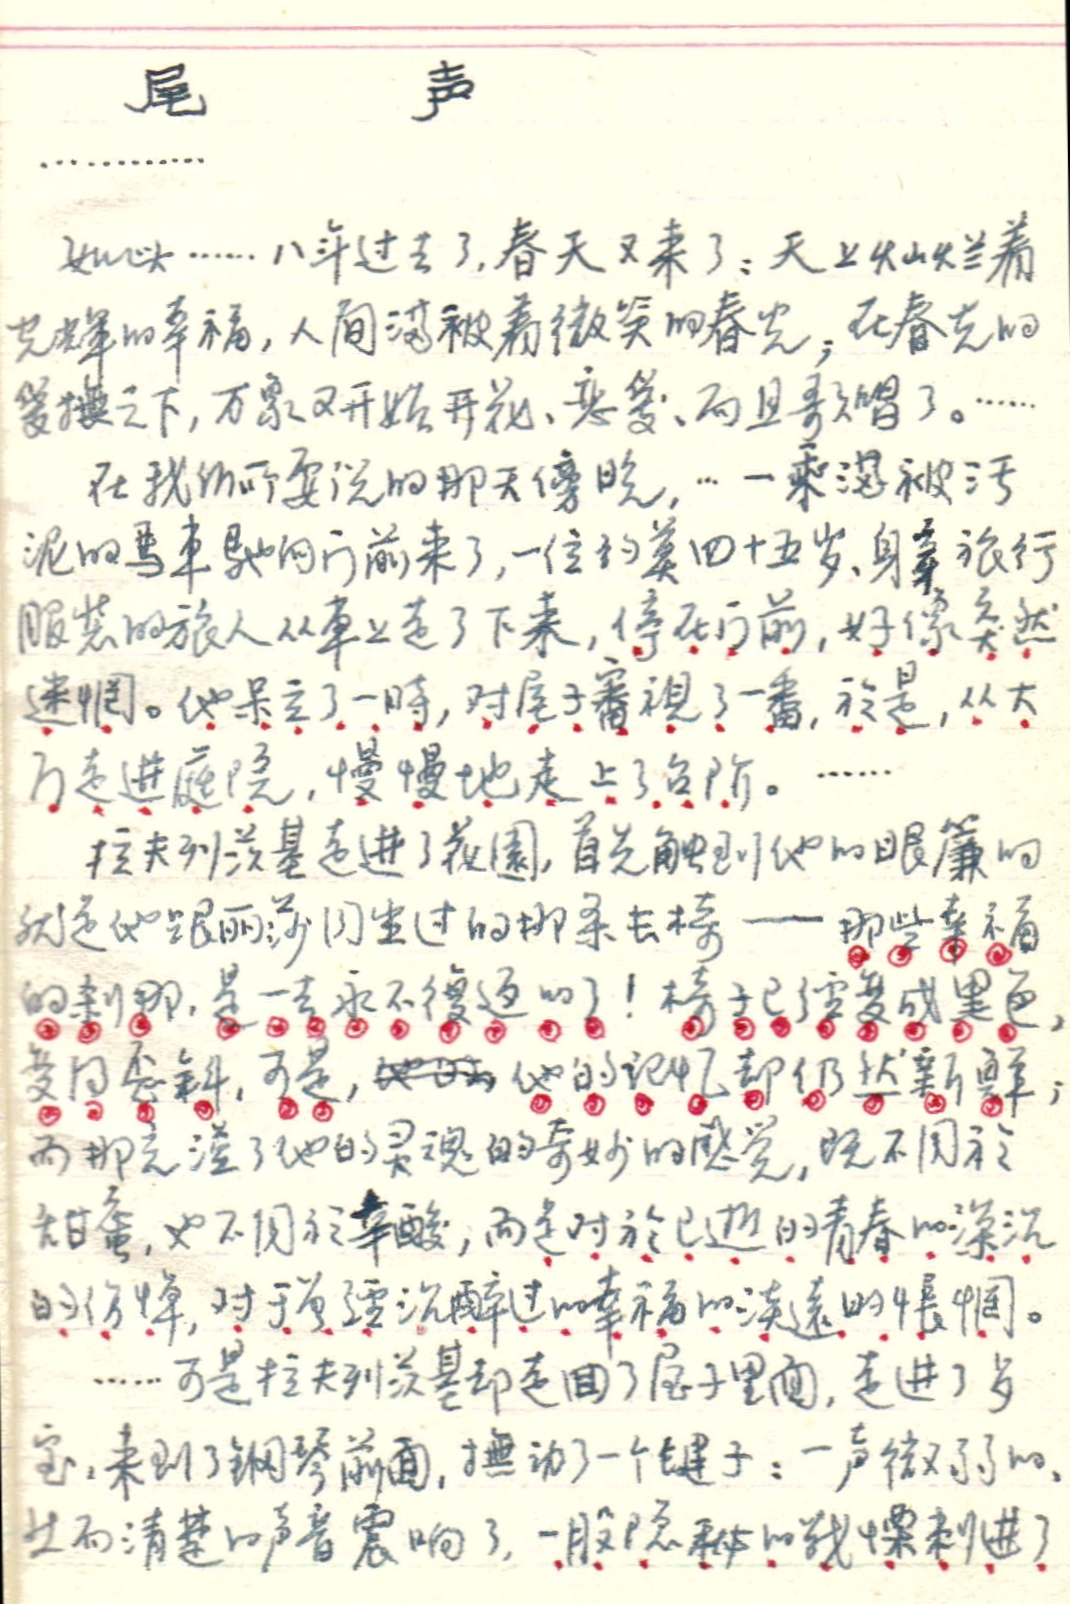 尾 声
…………
如此……八年过去了，春天又来了：天上灿烂着
光辉的幸福，人间满被着微笑的春光；在春光的
爱撫之下，万象又开始开花、恋爱、而且歌唱了。……
在我们所要说的那天傍晚，…一乘满被污
泥的马車馳向门前来了，一位约莫四十五岁、身穿旅行
服装的旅人从車上走了下来，停在门前，好像突然
迷惘。他呆立了一時，对屋子審視了一番，於是，从大
门走进庭院，慢慢地走上了台阶。……
拉夫列茨基走进了花園，首先触到他的眼簾的
就是他跟丽莎同坐过的那条长椅——那些幸福
的刹那，是一去永不復返的了！椅子已經变成黑色，
变得歪斜，可是，他的记忆却仍然新鲜；
而那充溢了他的灵魂的奇妙的感觉，既不同於
甜蜜，也不同於辛酸，而是对於已逝的青春的深沉
的伤悼，对于曾經沉醉过的幸福的淡遠的悵惘。
……可是拉夫列茨基却走回了屋子里面，走进了
室，来到了鋼琴前面，撫动了一个键子：一声微弱的、
然而清楚的声音震响了，一股隐秘的战慄刺进了